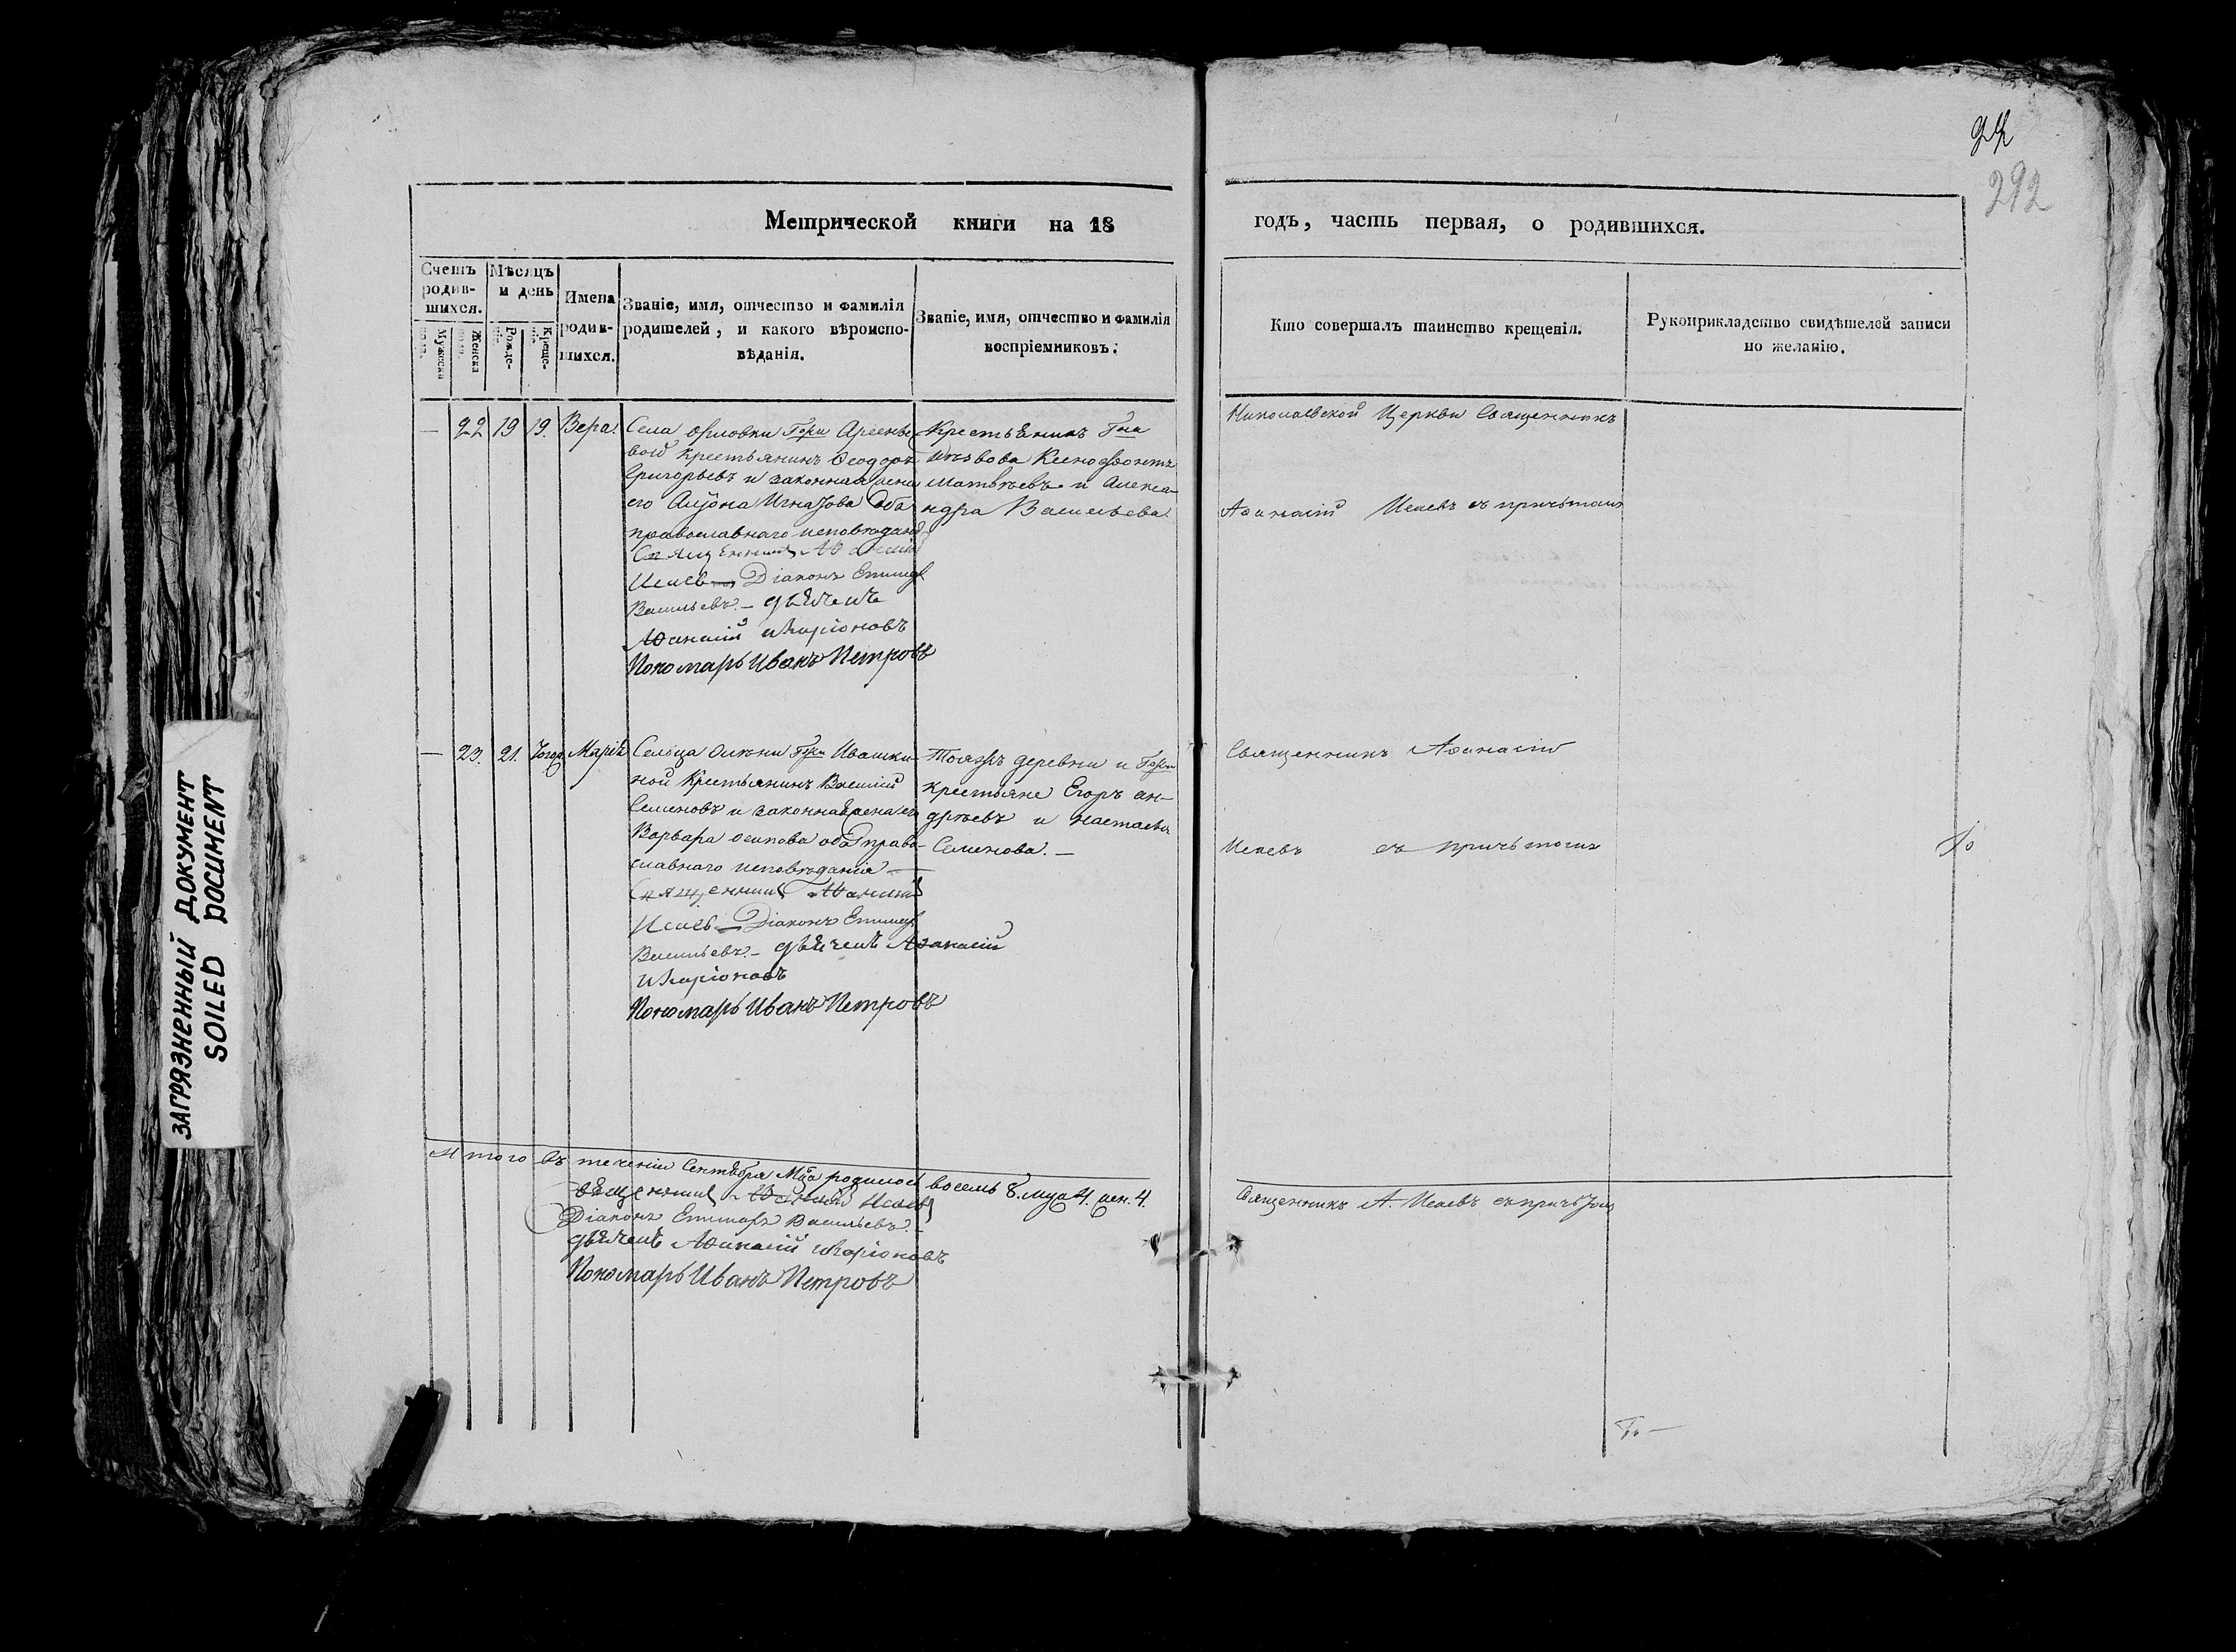 292
Метрической книги на 18
годъ, часть первая, о родившихся.
Счетъ родив-шихся.
Мужеска пола.
Женска пола.
Мѣсяцъ и день
Рожде-нія.
Креще-нія.
Имена родив-шихся.
Званіе, имя, отчество и фамилія
родителей, и какого вѣроиспо-
вѣданія.
Званіе, имя, отчество и фамилія
воспріемниковъ.
Кто совершалъ таинство крещенія.
Рукоприкладство свидѣтелей записи
по желанію.
— 22 19 19. Вера.
Села Орловки Гжи Арсенье
вой Крестьянинъ Ѳеодоръ
Григорьевъ и законная жена
его Игнатова Оба
православнаго исповѣдані
Священникъ Аѳанасій
Исаевъ Діаконъ
Васильевъ. — дьячекъ
Аѳанасій Иларіоновъ
Пономарь Иванъ Петровъ
Крестьянинъ Гна
Ксенофонтъ
Матвѣевъ и Алекса-
ндра Васильева.
Николаевской Церкви Священникъ
Аѳанасій Исаевъ съ причьтомъ
— 23. 21. Марія
Сельца Гжи Ивашки-
ной Крестьянинъ Василій
Семеновъ и законная жена его
Варвара Осипова оба право-
славнаго исповѣданія —
Священникъ Аѳанасій
Исаевъ Діаконъ
Васильевъ. — дьячекъ Аѳанасій
Иларіоновъ
Пономарь Иванъ Петровъ
Тояжъ деревни и Гжи
крестьяне Егоръ Ан-
дрѣевъ и Настасья
Семенова. —
Священникъ Аѳанасій
Исаевъ съ причьтомъ
Итого въ теченіи Сентября Мца родилось восемь 8. муж 4. жен. 4.
Священникъ Аѳанасій Исаевъ
Діаконъ Васильевъ. —
дьячекъ Аѳанасій Иларіоновъ
Пономарь Иванъ Петровъ
Священникъ А. Исаевъ съ причьтомъ
ЗАГРЯЗНЕННЫЙ ДОКУМЕНТ
SOILED DOCUMENT